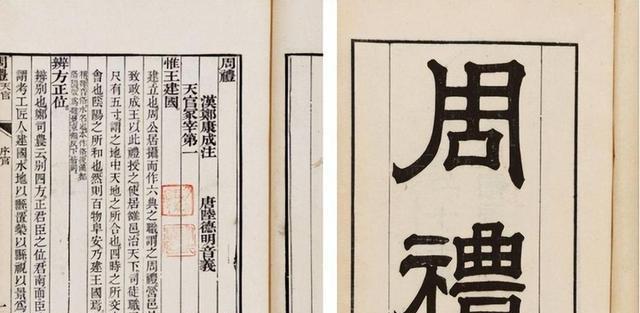 周禮
周禮
漢鄭康成注 唐陸德明音義
天官冢宰第一
惟王建國
建立也周公居攝而作六典之職謂之周禮營邑
致政成王以此禮授之使居雒邑治天下司徒職
尺有五寸謂之地中天地之所合也四時之所交
會也陰陽之所和也然則百物阜安乃建王國焉
辨方正位
辨別也鄭司農云別四方正君臣之位君南面臣
謂考工匠人建國水地以縣置槷以縣視以景為
周禮 天官 序官 一